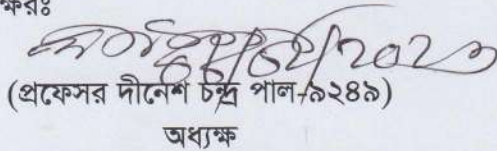 ক্ষরঃ
(প্রফেসর দীনেশ চন্দ্র পাল-৯২৪৯)
অধ্যক্ষ